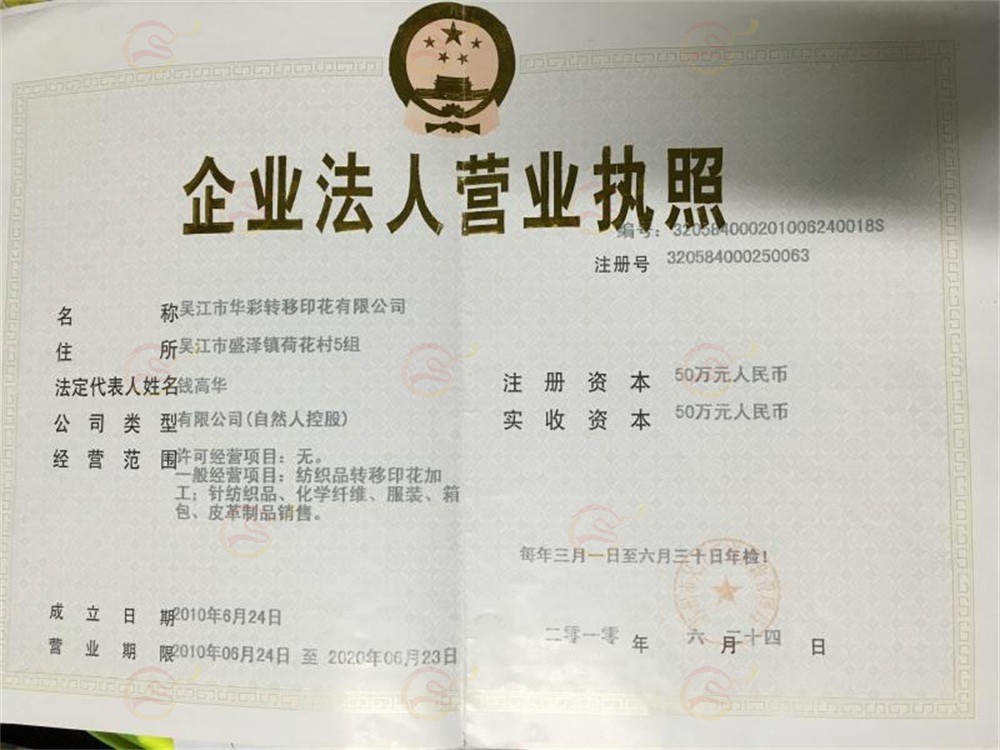 企业法人营业执照
编号：320584000201006240018S
注册号 320584000250063
名称 吴江市华彩转移印花有限公司
住所 吴江市盛泽镇荷花村5组
法定代表人姓名 钱高华
注册资本 50万元人民币
公司类型 有限公司(自然人控股)
实收资本 50万元人民币
经营范围 许可经营项目：无。
一般经营项目：纺织品转移印花加
工；针纺织品、化学纤维、服装、箱
包、皮革制品销售。
每年三月一日至六月三十日年检！
成立日期 2010年6月24日
营业期限 2010年06月24日 至 2020年06月23日
二零一零 年 六 月 二十四 日